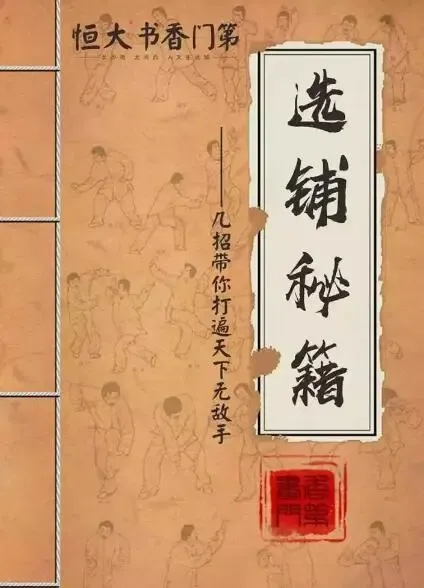 恒大书香门第
选铺秘籍
——几招带你打遍天下无敌手